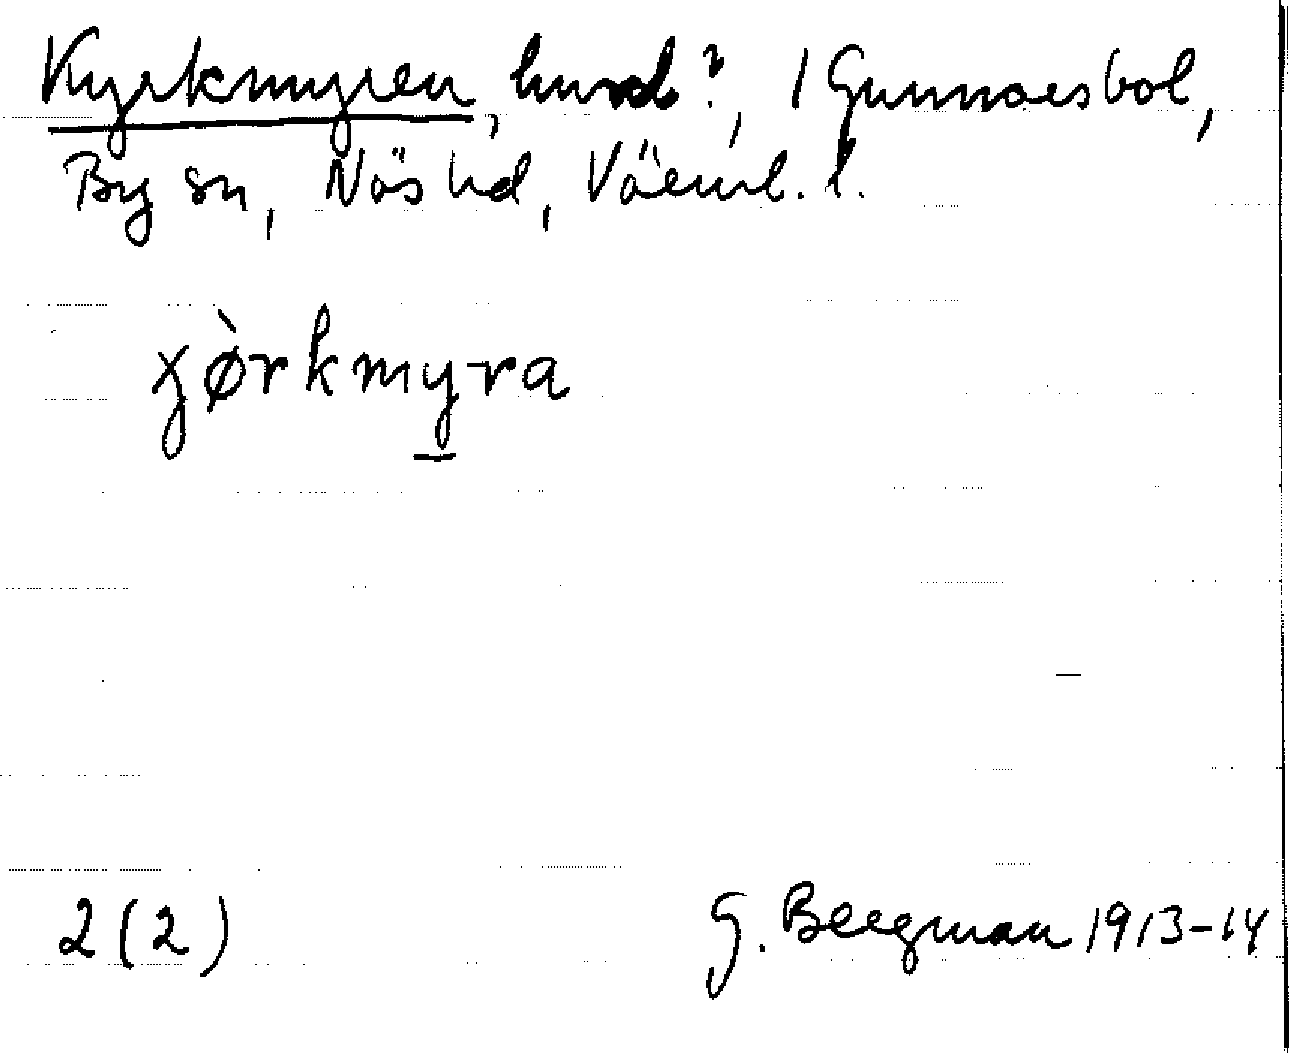 Kyrkmyren, hmd?, 1 Gunnarsbol,
By sn, Näs hd, Värml. l.
χø̀rkmy̠ra
2(2) G. Bergman 1913-14